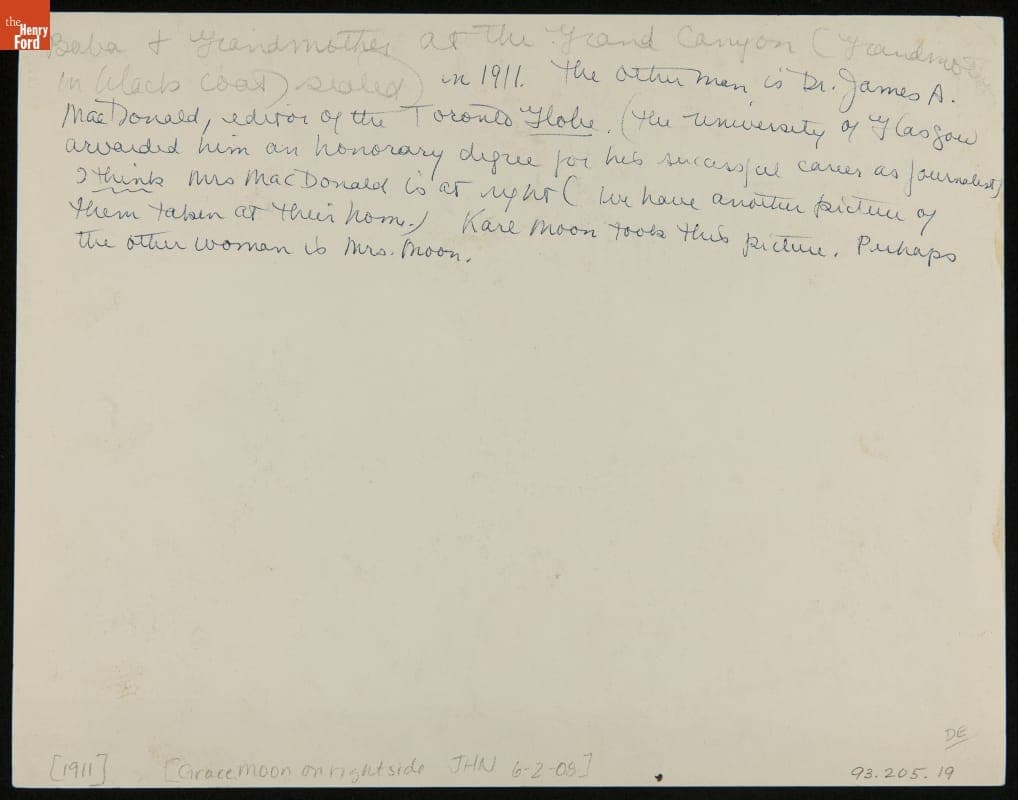 the
Henry
Ford
Baba & Grandmother at the Grand Canyon (Grandmother
in black coat, seated) in 1911. The other man is Dr. James A.
MacDonald, editor of the Toronto Globe. (The University of Glasgow
awarded him an honorary degree for his sucessful career as journalist)
I think Mrs MacDonald is at right (we have another picture of
them taken at their home.) Karl Moon took this picture. Perhaps
the other woman is Mrs. Moon.
DE
[1911] [Grace Moon on right side JHN 6-2-08] 93.205.19